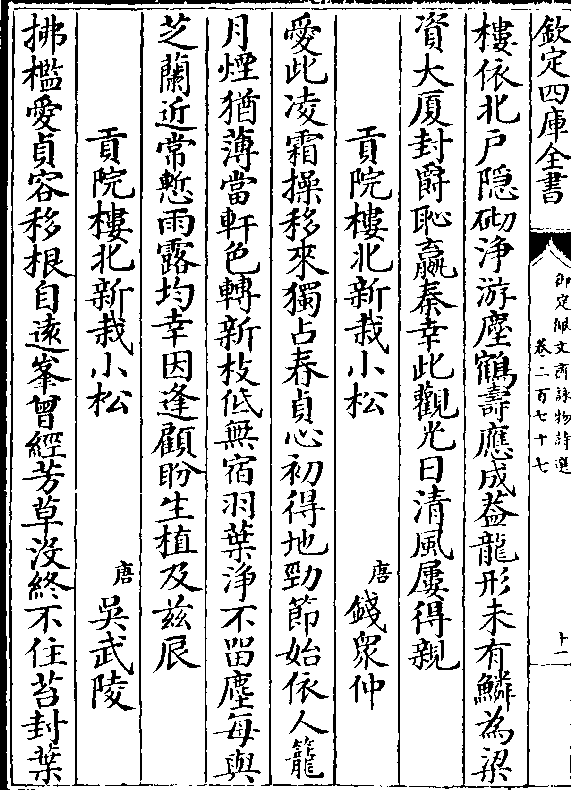 欽定四庫全書
御定佩文齋詠物詩選
卷二百七十七
十一
樓依北戸隠砌浄游塵鶴壽應成葢龍形未有鱗為梁
資大厦封爵恥嬴秦幸此觀光日清風屢得親
貢院樓北新栽小松 唐 錢衆仲
愛此凌霜操移來獨占春貞心初得地勁節始依人籠
月煙猶薄當軒色轉新枝低無宿羽葉浄不留塵每與
芝蘭近常慙雨露均幸因逢顧盼生植及兹辰
貢院樓北新栽小松 唐 吳武陵
拂檻愛貞容移根自逺峯曾經芳草沒終不住苔封葉